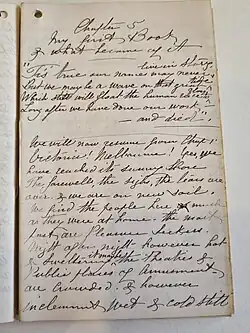 Chapter 5
My First Book
& what became of it
"Tis true our names may never live in story
But we may be a wave on that great
Which still will the human
Long after we have done our work
— and died"
We will now resume from Chapt 1.
Victoria! Melbourne! Yes, we
have reached its sunny shore.
The farewells, the sighs, the tears are
over. & we are on new soil
We find the people here much
as they were at home. the most
part are Pleasure Seekers.
Night after night however hot
& sweltering it may be the Theatres &
Public places of Amusement
are Crowded. & however
inclement, wet & cold still